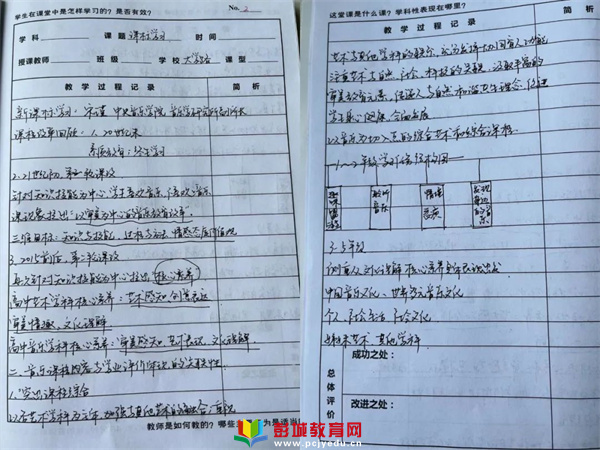 学生在课堂中是怎样学习的？是否有效？
No. 2
学科 课题 课标学习 时间
授课教师 班级 学校 大学路 课型
教学过程记录 简析
新课标学习 中央音乐学院
课程改革回顾：1、20世纪末
素质教育：终生学习
2、21世纪初，第一轮课改
针对知识技能为中心 学生喜欢音乐，不喜欢音乐
课 提出：以审美为中心的音乐教育改革
三维目标：知识与技能，过程与方法，情感态度价值观
3、2015前后，第二轮课改
再次针对知识技能为中心提出 核心素养
高中艺术学科核心素养：艺术感知 创意表达
审美情趣，文化理解
高中音乐学科核心素养：审美感知 艺术表现，文化理解
二、音乐课程内容与学业评价体现的关联性
1、突出课程综合
以各艺术学科为主体，加强与其他艺术的融合，重视
教师是如何教的？哪些主 为是适当
这堂课是什么课？学科性表现在哪里？
教学过程记录 简析
艺术与其他学科的联合，充分发挥协同育人功能
注重艺术与自然、社会、科技的关联，汲取丰富的
审美教育元素，传递人与自然和谐共生理念，促进
学生身心健康，全面发展
以音乐为切入点的综合艺术和综合课程
1～2年级学习内容结构图
趣味唱游
聆听音乐
情境表演
发现身边的音乐
3、5年级
中国音乐文化、世界多元音乐文化
个人 社会生活 社会文化
姊妹艺术 其他学科
总体评价
成功之处：
改进之处：
彭城教育网
www.pcjyedu.cn